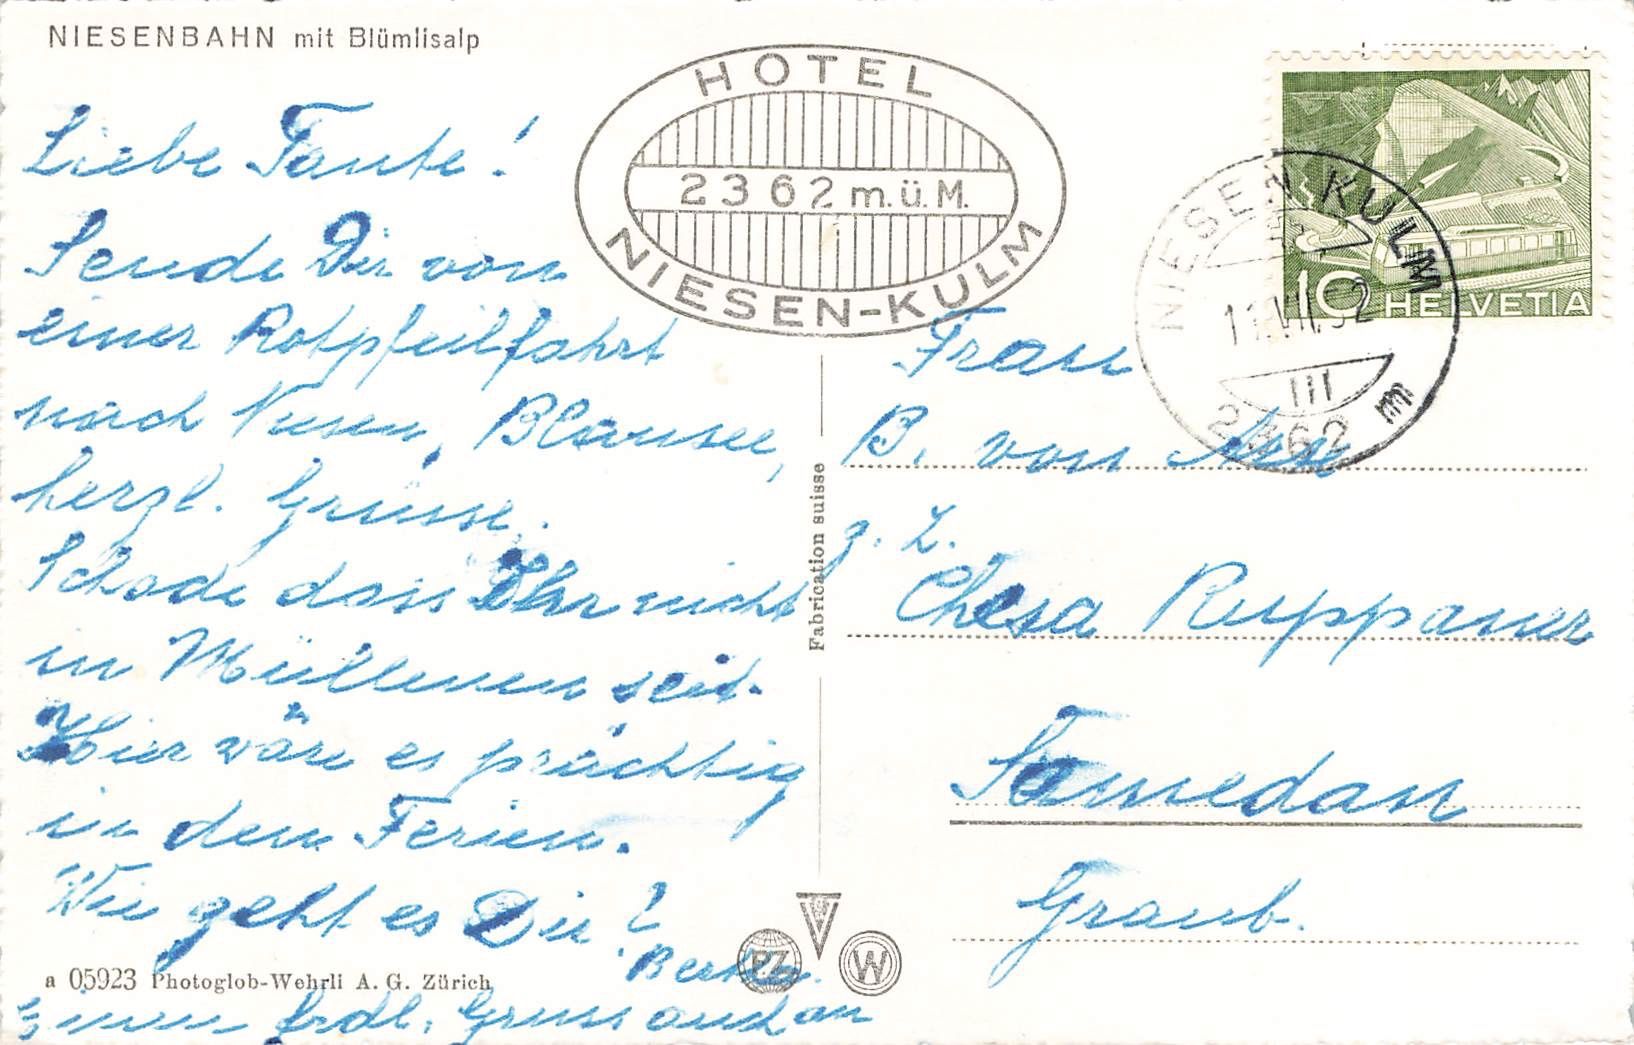 NIESENBAHN mit Blümlisalp
HOTEL
2362 m.ü.M.
NIESEN-KULM
10 HELVETIA
NIESEN KULM
11.VII.52
III
2362 m
Liebe Tante!
Sende Dir von
einer Rotpfeilfahrt
nach Niesen, Blausee,
herzl. Grüsse.
Schade dass Ihr nicht
in Müllenen seit.
Hier wäre es prächtig
in den Ferien.
Wie geht es Dir?
Bertha.
Einen frdl. Gruss auch an
Frau
B. von
z. Z.
Chesa Ruppanner
Samedan
Graub.
Fabrication suisse
PZ
W
a 05923 Photoglob-Wehrli A. G. Zürich